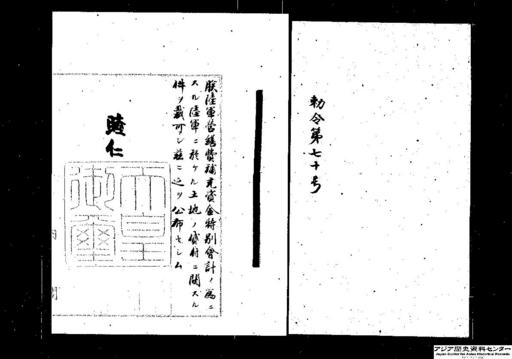 勅令第七十号
朕陸軍営繕費補充資金特別會計ノ為ニ
スル陸軍ニ於ケル土地ノ貸付ニ関スル
件ヲ裁可シ茲ニ之ヲ公布セシム
睦仁
天皇
御璽
アジア歴史資料センター
Japan Center for Asian Historical Records